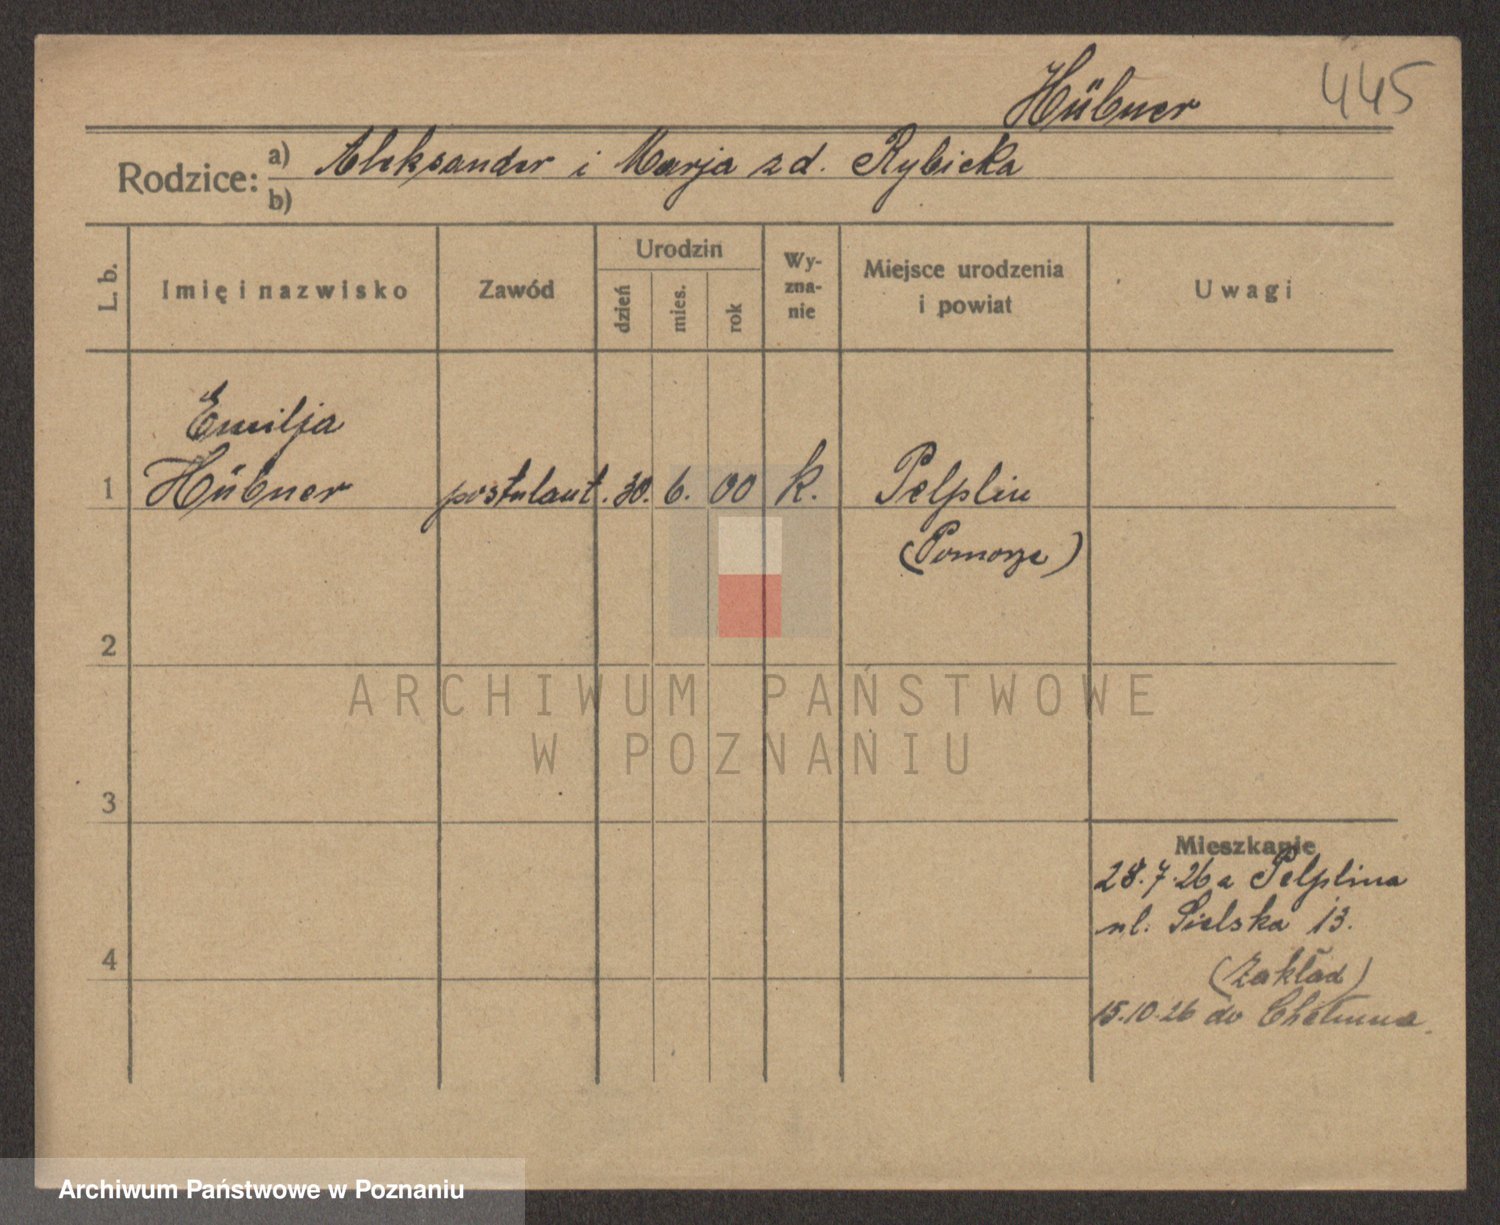 Hübner 445
Rodzice: a) Aleksander i Marja zd. Rybicka
b)
L. b. Imię i nazwisko Zawód Urodzin dzień mies. rok Wyznanie Miejsce urodzenia i powiat Uwagi
Emilja
1 Hübner postulant. 30. 6. 00 k. Pelplin
(Pomorze)
2
ARCHIWUM PAŃSTWOWE
W POZNANIU
3
Mieszkanie
28.7.26 z Pelplina
ul. Sielska 13.
4 (Zakład)
15.10.26 do Chełmna.
Archiwum Państwowe w Poznaniu